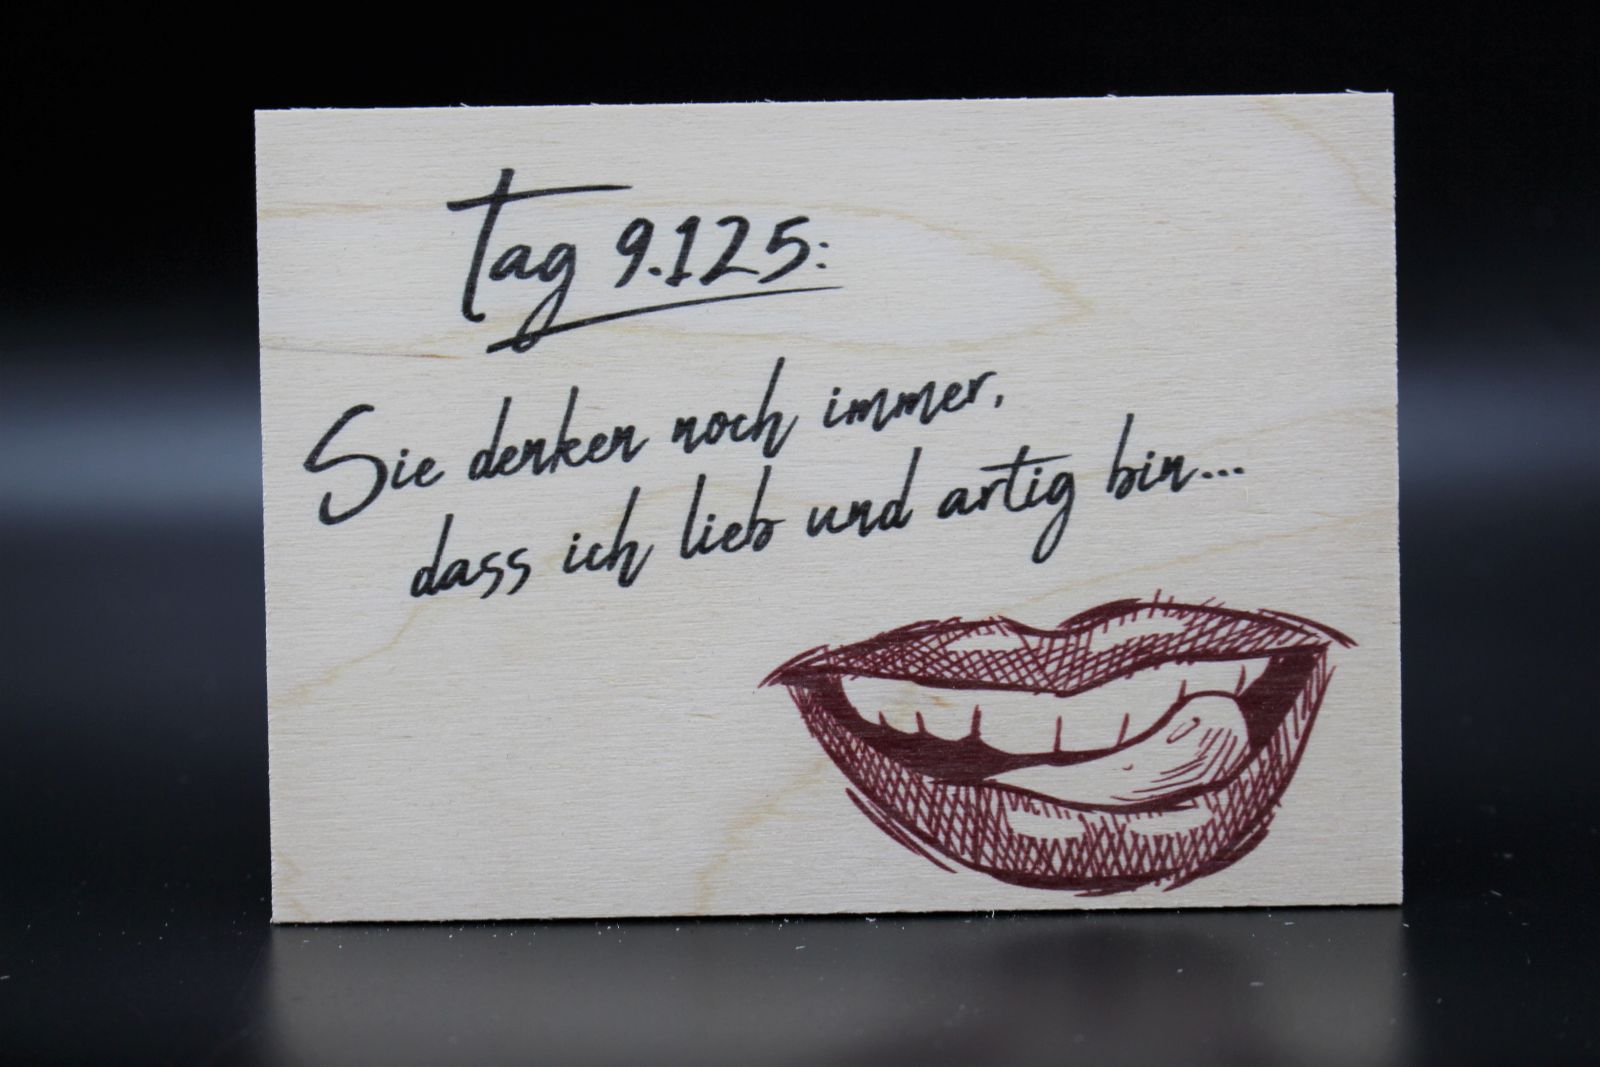 Tag 9.125:
Sie denken noch immer,
dass ich lieb und artig bin...